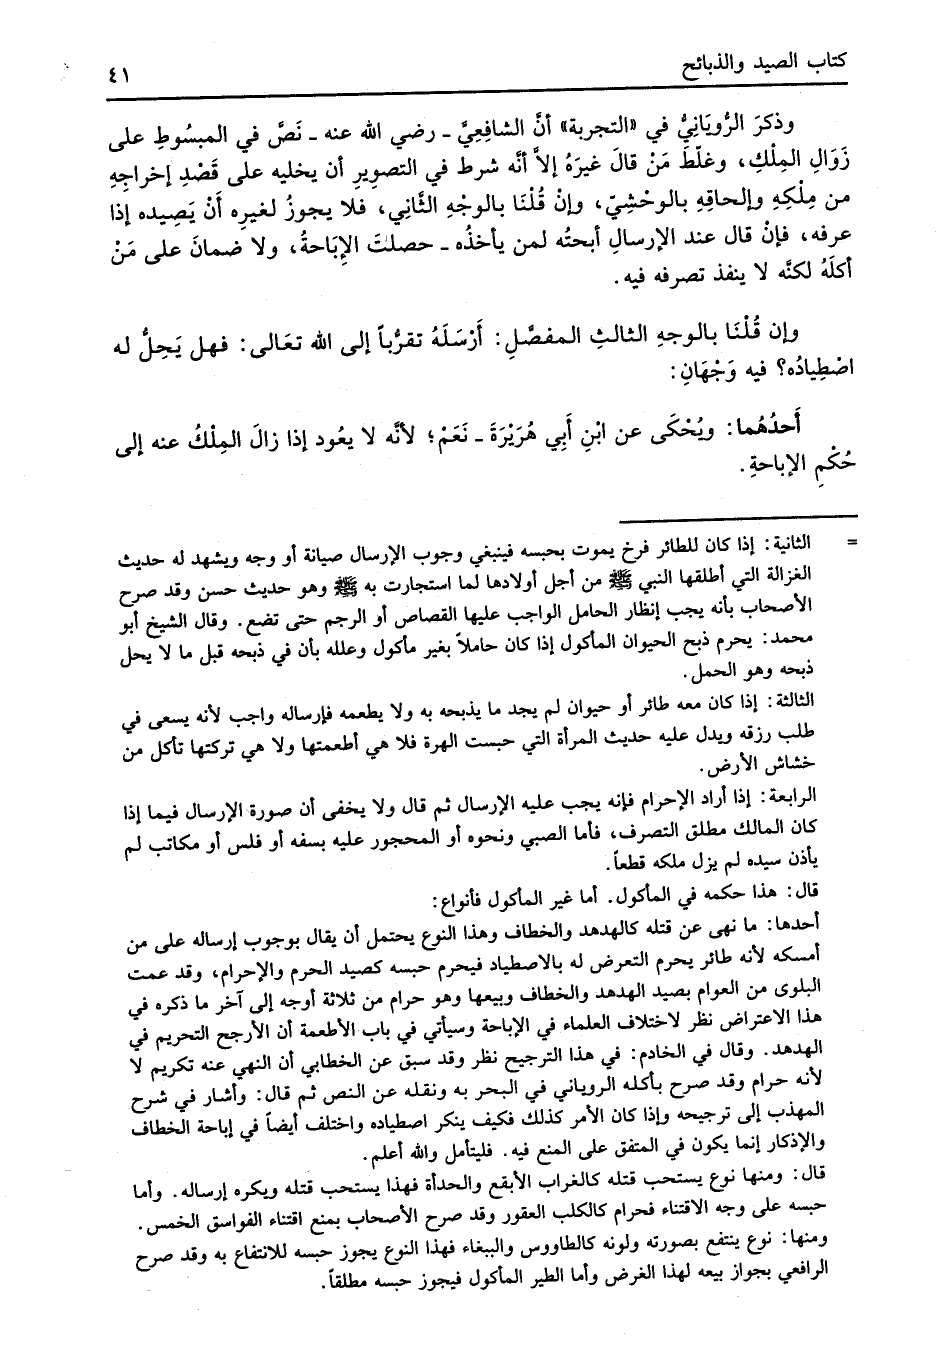 كتاب الصيد والذبائح
٤١
وذكرَ الرُّويَانِيُّ في «التجربة» أنَّ الشافِعِيَّ ـ رضي الله عنه ـ نَصَّ في المبسُوطِ على
زَوَالِ المِلْكِ، وغلّطَ مَنْ قالَ غيرَهُ إلاَّ أنَّه شرط في التصويرِ أن يخليه على قَصْدِ إخراجِهِ
من مِلْكِهِ وإلحاقِهِ بالوحْشِيِّ، وإنْ قُلْنَا بالوجْهِ الثَّانِي، فلا يجوزُ لغيرِه أنْ يَصِيده إذا
عرفه، فإنْ قال عند الإرسالِ أبحتُه لمن يأخذُه ـ حصلتَ الإِبَاحةُ، ولا ضمانَ على مَنْ
أكلَهُ لكنَّه لا ينفذ تصرفه فيه.
وإن قُلْنَا بالوجهِ الثالثِ المفصَّلِ: أَرْسَلَهُ تقرُّباً إلى الله تعَالى: فهل يَحِلُّ له
اصْطِيادُه؟ فيه وَجْهَانِ:
أَحدُهُما: ويُحْكَى عن ابْنِ أَبِي هُرَيْرَةَ ـ نَعَمْ؛ لأنَّه لا يعُود إذا زالَ المِلْكُ عنه إلى
حُكْمِ الإباحةِ.
= الثانية: إذا كان للطائر فرخ يموت بحبسه فينبغي وجوب الإرسال صيانة أو وجه ويشهد له حديث
الغزالة التي أطلقها النبي ﷺ من أجل أولادها لما استجارت به ﷺ وهو حديث حسن وقد صرح
الأصحاب بأنه يجب إنظار الحامل الواجب عليها القصاص أو الرجم حتى تضع. وقال الشيخ أبو
محمد: يحرم ذبح الحيوان المأكول إذا كان حاملاً بغير مأكول وعلله بأن في ذبحه قبل ما لا يحل
ذبحه وهو الحمل.
الثالثة: إذا كان معه طائر أو حيوان لم يجد ما يذبحه به ولا يطعمه فإرساله واجب لأنه يسعى في
طلب رزقه ويدل عليه حديث المرأة التي حبست الهرة فلا هي أطعمتها ولا هي تركتها تأكل من
خشاش الأرض.
الرابعة: إذا أراد الإحرام فإنه يجب عليه الإرسال ثم قال ولا يخفى أن صورة الإرسال فيما إذا
كان المالك مطلق التصرف، فأما الصبي ونحوه أو المحجور عليه بسفه أو فلس أو مكاتب لم
يأذن سيده لم يزل ملكه قطعاً.
قال: هذا حكمه في المأكول. أما غير المأكول فأنواع:
أحدها: ما نهى عن قتله كالهدهد والخطاف وهذا النوع يحتمل أن يقال بوجوب إرساله على من
أمسكه لأنه طائر يحرم التعرض له بالاصطياد فيحرم حبسه كصيد الحرم والإحرام، وقد عمت
البلوى من العوام بصيد الهدهد والخطاف وبيعها وهو حرام من ثلاثة أوجه إلى آخر ما ذكره في
هذا الاعتراض نظر لاختلاف العلماء في الإباحة وسيأتي في باب الأطعمة أن الأرجح التحريم في
الهدهد. وقال في الخادم: في هذا الترجيح نظر وقد سبق عن الخطابي أن النهي عنه تكريم لا
لأنه حرام وقد صرح بأكله الروياني في البحر به ونقله عن النص ثم قال: وأشار في شرح
المهذب إلى ترجيحه وإذا كان الأمر كذلك فكيف ينكر اصطياده واختلف أيضاً في إباحة الخطاف
والإذكار إنما يكون في المتفق على المنع فيه. فليتأمل والله أعلم.
قال: ومنها نوع يستحب قتله كالغراب الأبقع والحدأة فهذا يستحب قتله ويكره إرساله. وأما
حبسه على وجه الاقتناء فحرام كالكلب العقور وقد صرح الأصحاب بمنع اقتناء الفواسق الخمس.
ومنها: نوع ينتفع بصورته ولونه كالطاووس والببغاء فهذا النوع يجوز حبسه للانتفاع به وقد صرح
الرافعي بجواز بيعه لهذا الغرض وأما الطير المأكول فيجوز حبسه مطلقاً.